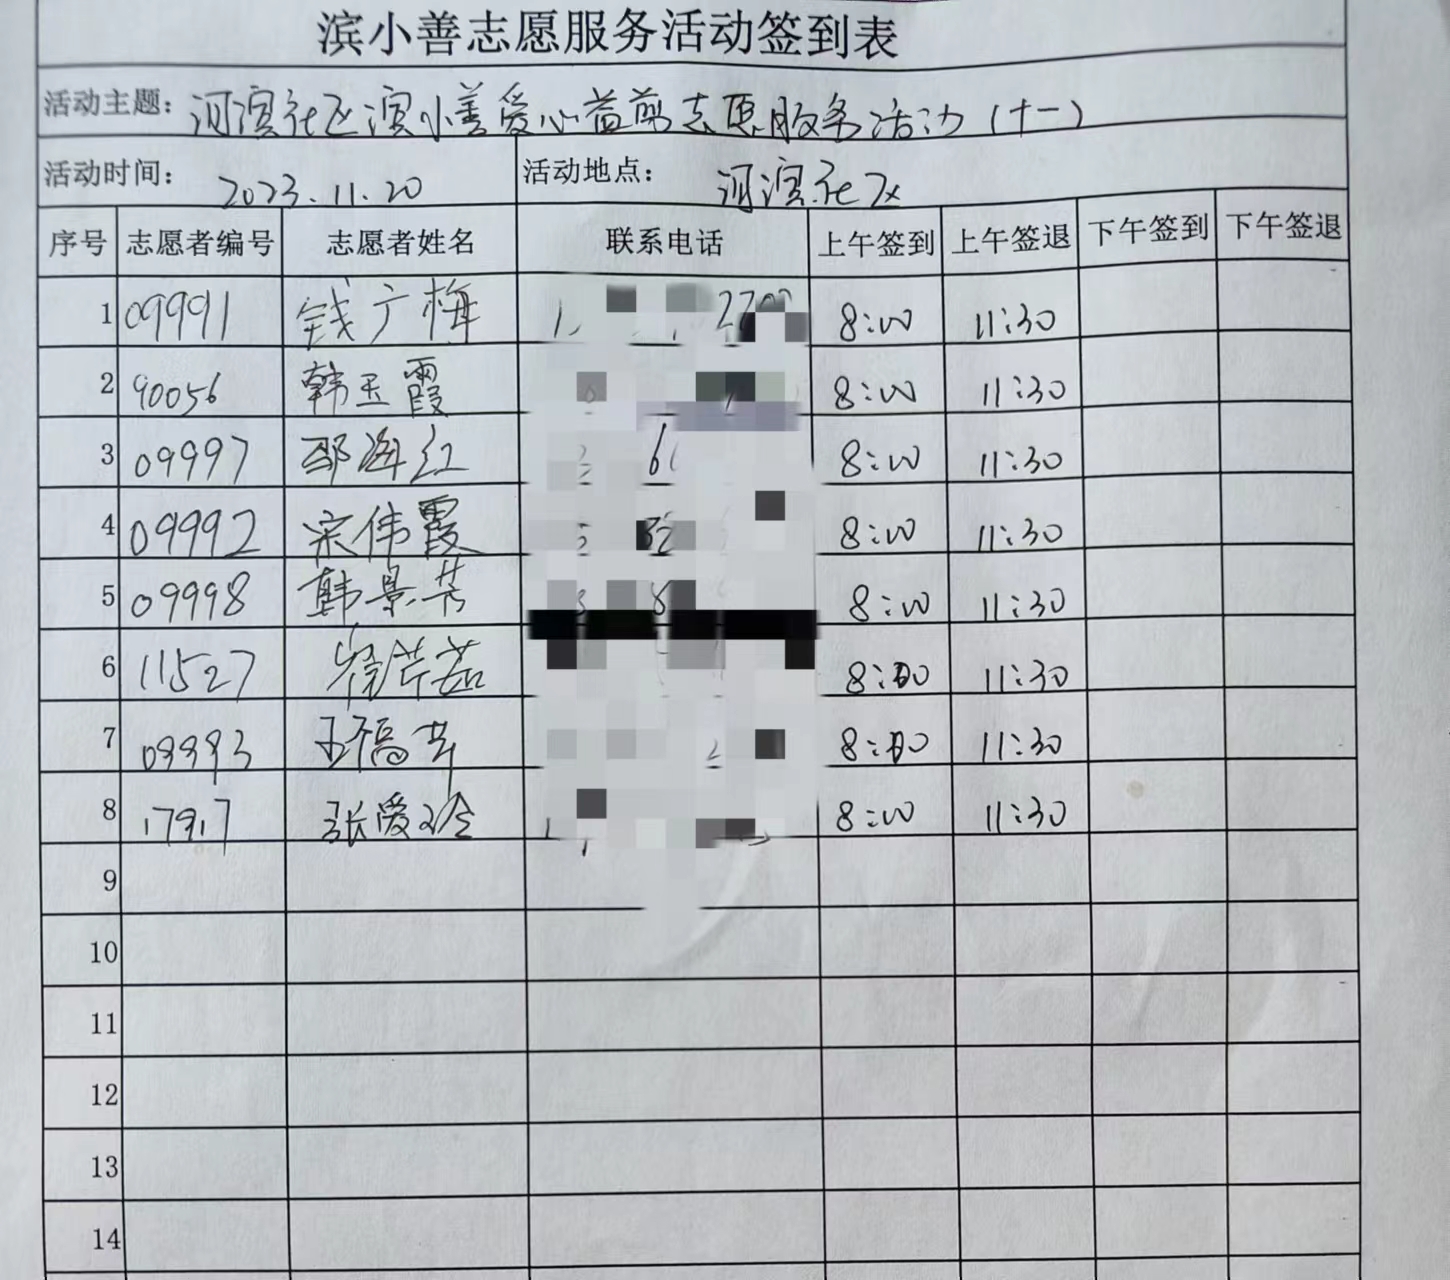 滨小善志愿服务活动签到表
活动主题: 河滨社区滨小善爱心益剪志愿服务活动(十一)
活动时间: 2023.11.20 活动地点: 河滨社区
序号 志愿者编号 志愿者姓名 联系电话 上午签到 上午签退 下午签到 下午签退
1 09991 钱广梅 8:00 11:30
2 90056 韩玉霞 8:00 11:30
3 09997 邵海红 8:00 11:30
4 09992 宋伟霞 8:00 11:30
5 09998 韩景芳 8:00 11:30
6 11527 8:00 11:30
7 09993 王福芹 8:00 11:30
8 17917 张爱玲 8:00 11:30
9
10
11
12
13
14